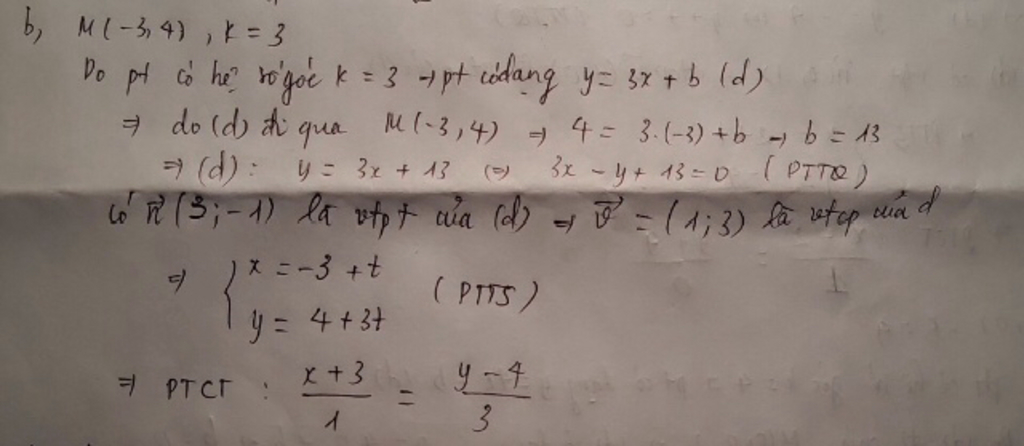 b, M(-3,4), k = 3
Do pt có hệ số góc k = 3 → pt có dạng y = 3x + b (d)
⇒ do (d) đi qua M(-3,4) ⇒ 4 = 3.(-3) + b → b = 13
⇒ (d): y = 3x + 13 ⇔ 3x - y + 13 = 0 (PTTQ)
có n⃗ (3; -1) là vtpt của (d) ⇒ v⃗ = (1; 3) là vtcp của d
⇒ { x = -3 + t
y = 4 + 3t (PTTS)
⇒ PTCT : (x + 3)/1 = (y - 4)/3